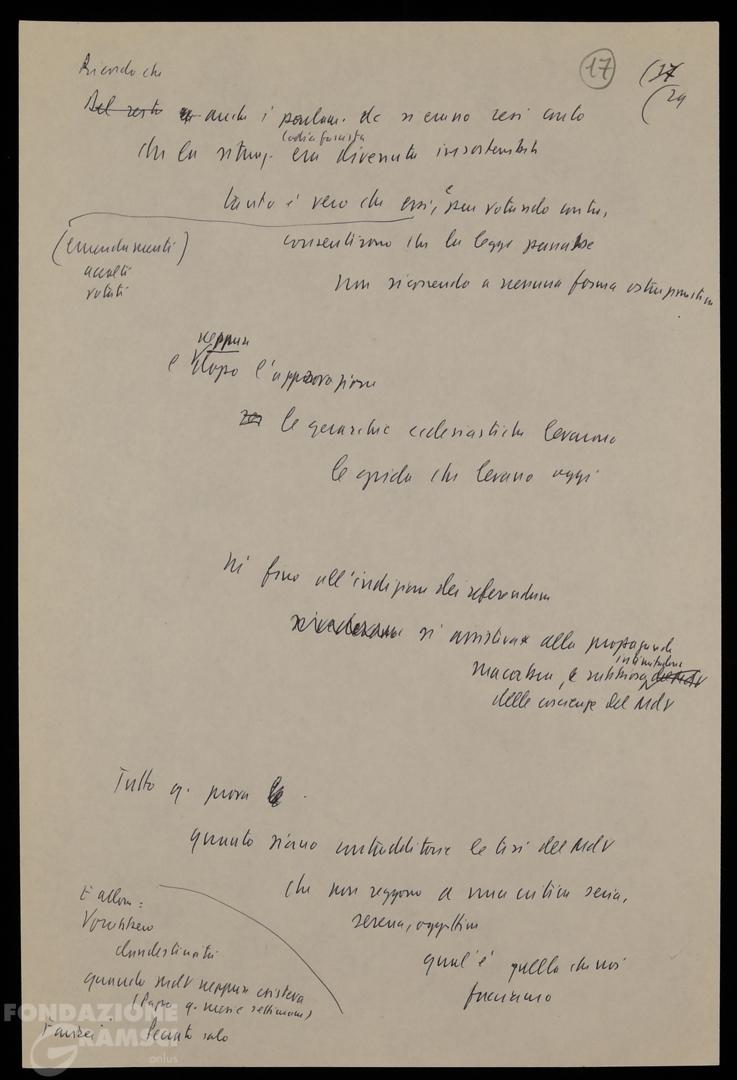 17
(37
(29
Ricordo che
Del resto anche i parlam. dc si erano resi conto
(codice fascista
che la situaz. era divenuta insostenibile
tanto è vero che essi, pur votando contro,
(emendamenti)
accolti
votati
consentirono che la legge passasse
non ricorrendo a nessuna forma ostruzionistica
neppure
e dopo l'approvazione
le gerarchie ecclesiastiche levarono
le grida che levano oggi
Né fino all'indizione dei referendum
si assisteva alla propaganda
intimidatrice
macabra, e
delle coscienze del MdV
Tutto q. prova
quanto siano contraddittorie le tesi del MdV
che non reggono a una critica seria,
serena, oggettiva
qual'è quella che noi
facciamo
E allora:
Vorrebbero
clandestinità
quando mdv neppure esisteva
(Papa q. mesi e settimane)
Senato solo
FONDAZIONE
GRAMSCI
onlus